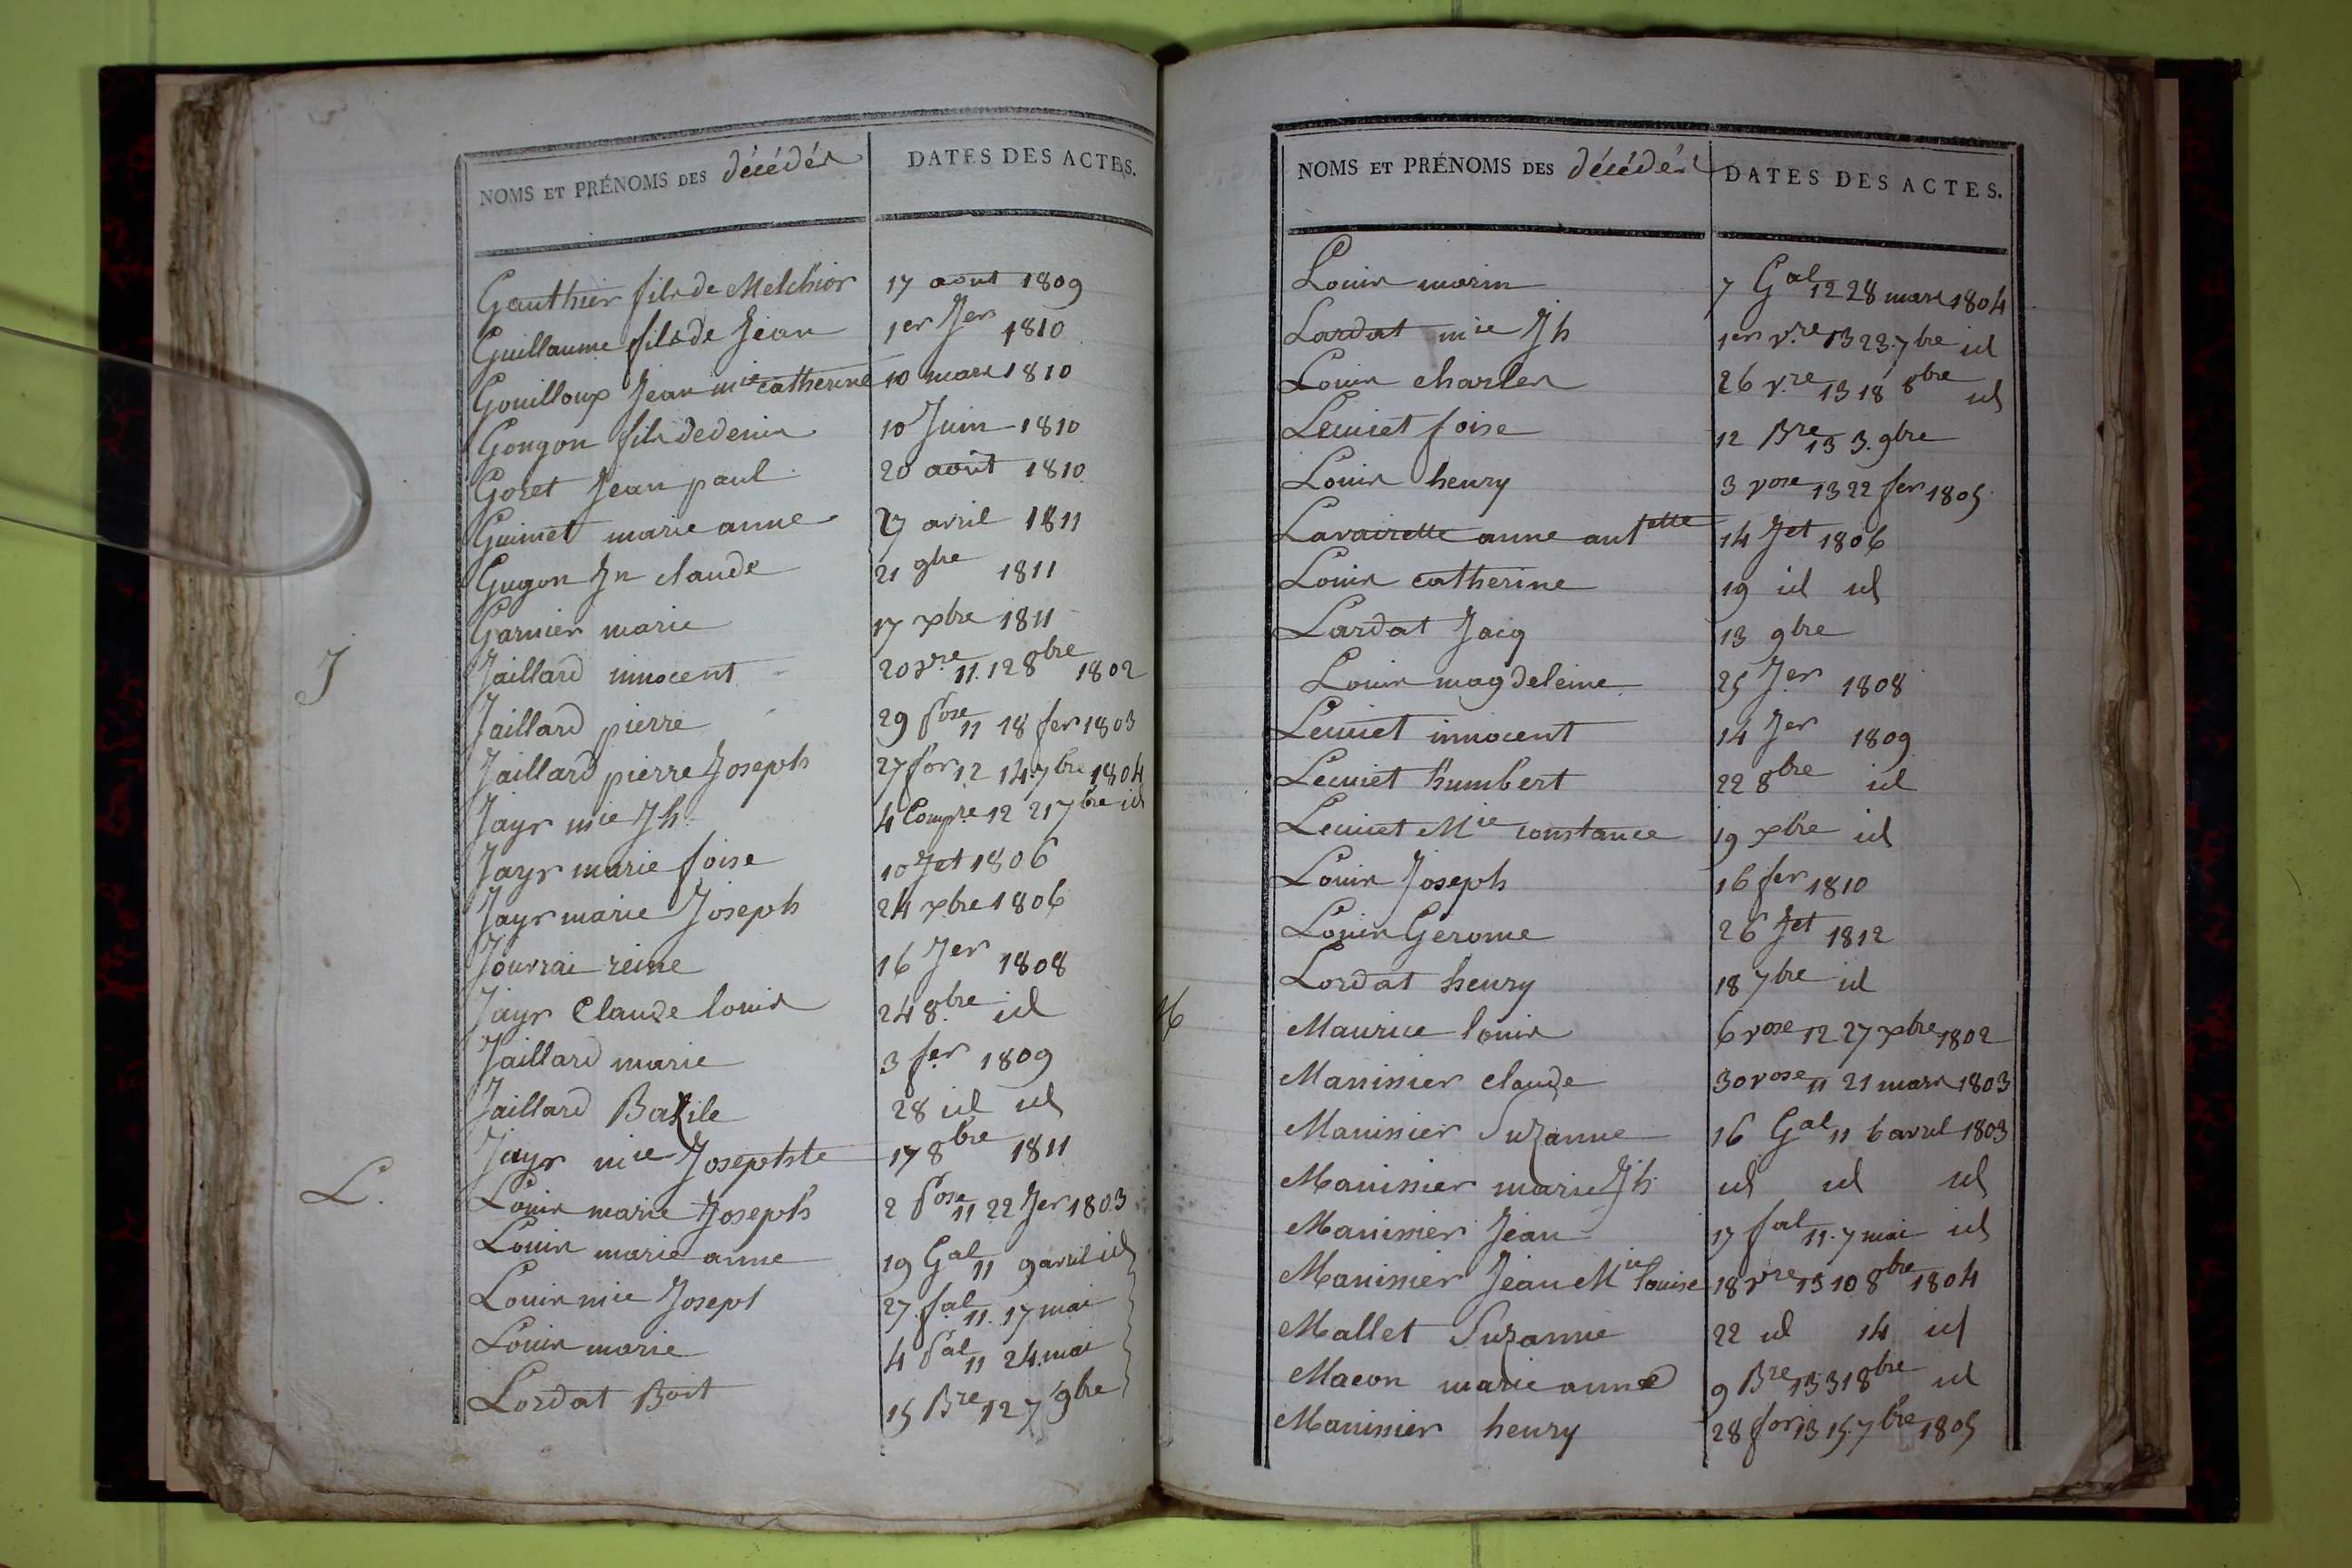 NOMS ET PRÉNOMS DES décédés DATES DES ACTES.
Gauthier fils de Melchior 17 aout 1809
Guillaume fils de Jean 1er Jer 1810
Gouilloux Jean mie catherine 10 mars 1810
Gongon fils de denis 10 Juin 1810
Goret Jean paul 20 août 1810
Guinet marie anne 27 avril 1811
Gugon Jn claude 21 9bre 1811
Garnier marie 17 xbre 1811
J Jaillard innocent 20 vre 11. 12 8bre 1802
Jaillard pierre 29 Pose 11 18 fer 1803
Jaillard pierre Joseph 27 for 12 14 7bre 1804
Jayr mie Jh 4 Compre 12 21 7bre id
Jayr marie foise 10 Jet 1806
Jayr marie Joseph 24 xbre 1806
Jourrai reine 16 Jer 1808
Jayr Claude louis 24 8bre id
Jaillard marie 3 fer 1809
Jaillard Bazile 28 id id
Jayr mie Josephte 17 8bre 1811
L. Louis marie Joseph 2 Pose 11 22 Jer 1803
Louis marie anne 19 Gal 11 9 avril id
Louis mie Joseph 27 fal 11. 17 mai
Louis marie 4 Pal 11 24 mai
Lordat Boit 15 Bre 12 7 9bre
NOMS ET PRÉNOMS DES décédés DATES DES ACTES.
Louis marin 7 Gal 12 28 mars 1804
Lardat mie Jh 1er vre 13 23 7bre id
Louis charles 26 vre 13 18 8bre id
Lecuiet foise 12 Bre 13 3. 9bre
Louis henry 3 vose 13 22 fer 1805
Lavairette anne antette 14 Jet 1806
Louis catherine 19 id id
Lardat Jacq 13 9bre
Louis magdeleine 25 Jer 1808
Lecuiet innocent 14 Jer 1809
Lecuiet humbert 22 8bre id
Lecuiet Mie constance 19 xbre id
Louis Joseph 16 fer 1810
Louis Gerome 26 Jet 1812
Lordat henry 18 7bre id
M Maurice louis 6 vose 12 27 xbre 1802
Manissier claude 30 vose 11 21 mars 1803
Manissier Suzanne 16 Gal 11 6 avril 1803
Manissier marie Jh id id id
Manissier Jean 17 fal 11. 7 mai id
Manissier Jean Mie louise 18 vre 13 10 8bre 1804
Mallet Suzanne 22 id 14 id
Macon marie anne 9 Bre 13 31 8bre id
Manissier henry 28 for 13 15. 7bre 1805